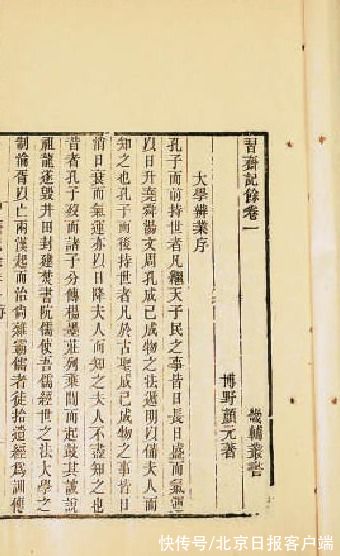 習齋記餘卷一
畿輔叢書
博野顏元著
大學辨業序
孔子而前持世者凡繼天子民之事皆日長日盛而氣運
以日升堯舜湯文周孔成己成物之法遞明以傳夫人而
知之也孔子而後持世者凡於古聖成己成物之事皆日
消日衰而氣運亦以日降夫人而知之夫人不盡知之也
昔者孔子歿而諸子分傳楊墨莊列乘間而起鼓其詖說
祖龍遂毀井田封建焚書阬儒使吾儒經世之法大學之
制淪胥以亡兩漢起而治尚雜霸儒者徒拾遺經為訓傳
快传号/北京日报客户端